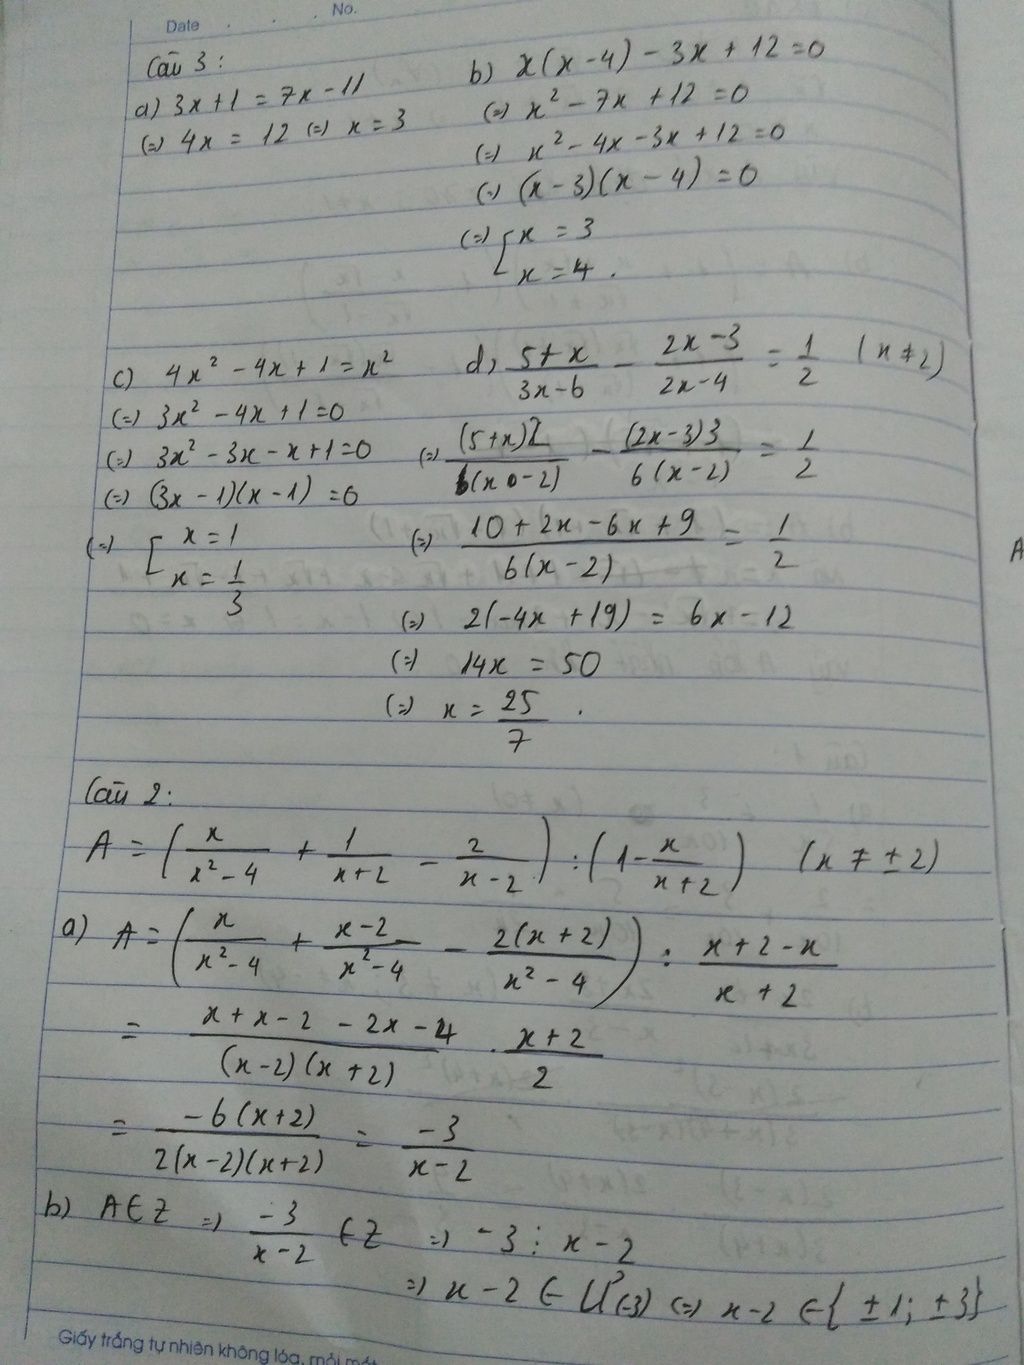 Date . . . No.
Câu 3 :
a) 3x+1 = 7x-11
(=) 4x = 12 (=) x = 3
b) x(x-4) - 3x + 12 = 0
(=) x² - 7x + 12 = 0
(=) x² - 4x - 3x + 12 = 0
(=) (x-3)(x-4) = 0
(=) [ x = 3
x = 4 .
c) 4x² - 4x + 1 = x²
(=) 3x² - 4x + 1 = 0
(=) 3x² - 3x - x + 1 = 0
(=) (3x-1)(x-1) = 0
(=) [ x = 1
x = 1/3
d) (5+x)/(3x-6) - (2x-3)/(2x-4) = 1/2 (x≠2)
(=) (5+x)2/6(x-2) - (2x-3)3/6(x-2) = 1/2
(=) (10+2x-6x+9)/6(x-2) = 1/2
(=) 2(-4x+19) = 6x-12
(=) 14x = 50
(=) x = 25/7 .
Câu 2:
A = (x/(x²-4) + 1/(x+2) - 2/(x-2)) : (1 - x/(x+2)) (x ≠ ±2)
a) A = (x/(x²-4) + (x-2)/(x²-4) - 2(x+2)/(x²-4)) : (x+2-x)/(x+2)
= (x+x-2-2x-4)/(x-2)(x+2) . (x+2)/2
= -6(x+2)/2(x-2)(x+2) = -3/(x-2)
b) A ∈ Z => -3/(x-2) ∈ Z => -3 ⋮ x-2
=> x-2 ∈ Ư(-3) (=) x-2 ∈ { ±1; ±3}
A
Giấy trắng tự nhiên không lóa, mỏi mắt